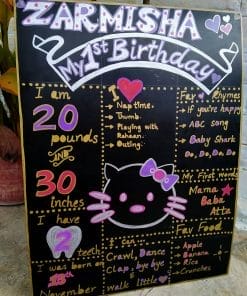 ZARMISHA
My 1st Birthday
I am
20
pounds
AND
30
inches
I have
2
teeth
I was born on
15th
November
I
Nap time.
Thumb.
Playing with
Rohaan.
Outing.
I can
Crawl, Dance
Clap, bye bye
walk little
Fav Rhymes
If you're happy
ABC song
Baby Shark
Do, Do, Do, Do
My First Words
Mama
Baba
Atta
Fav Food
Apple
Banana
Rice
Crunches